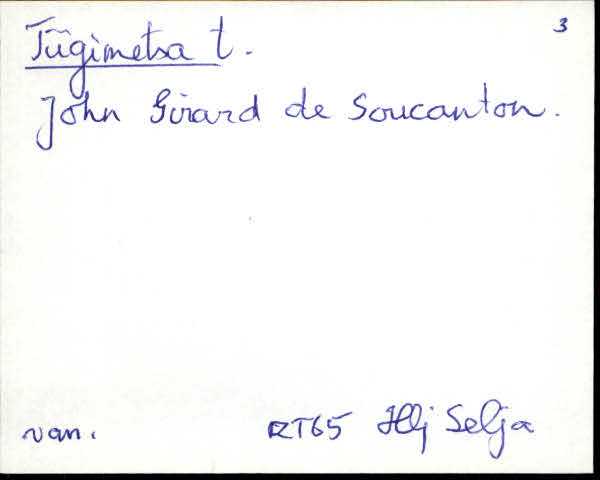 3
Tügimetsa t.
John Girard de Soucanton.
van. RT65 Hlj Selja